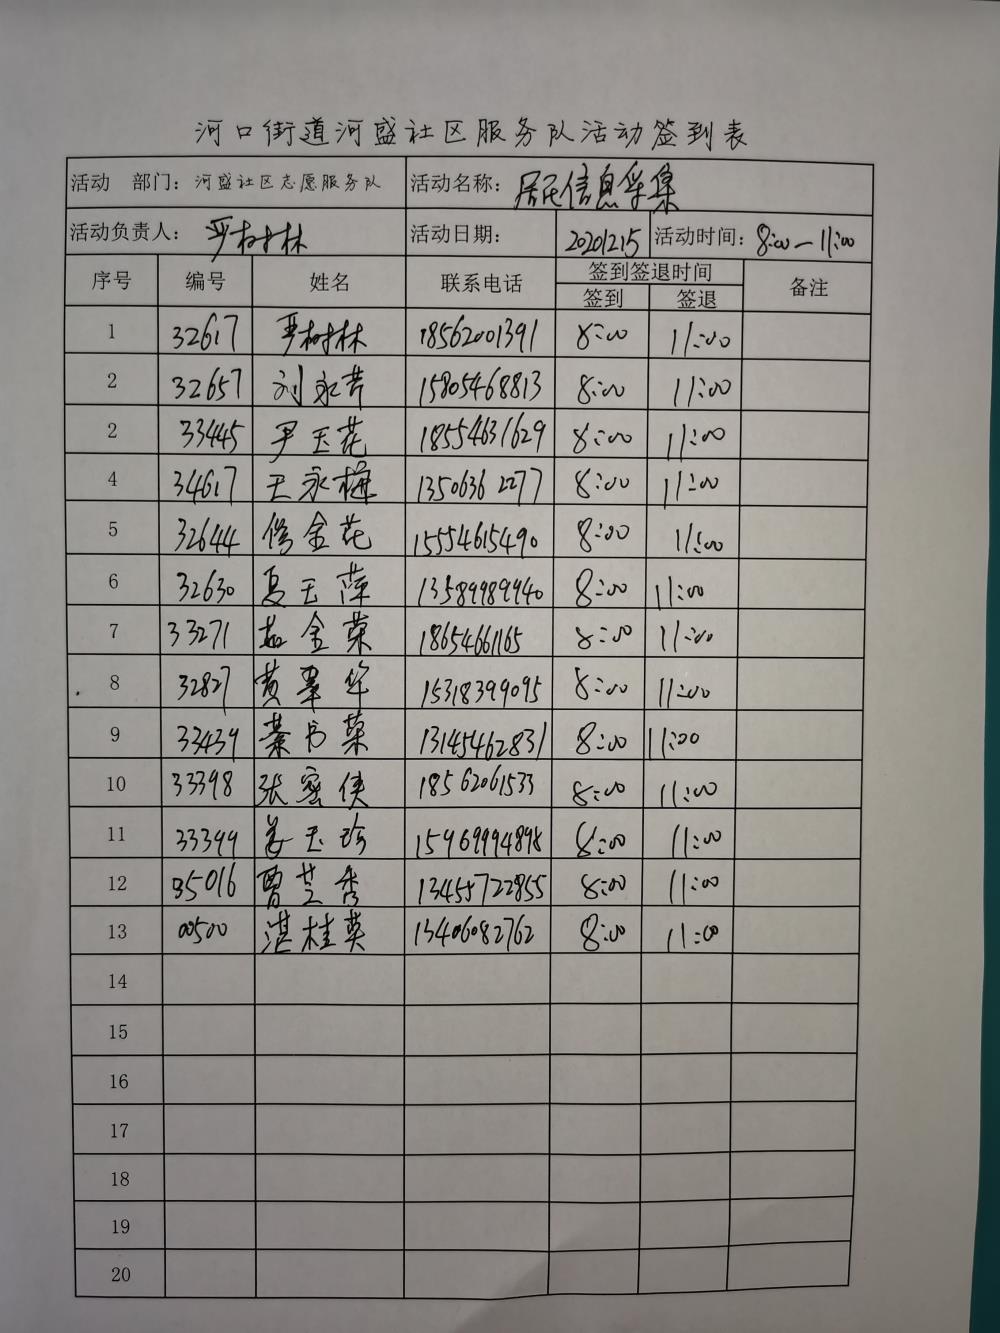 河口街道河盛社区服务队活动签到表
活动 部门：河盛社区志愿服务队 活动名称：居民信息采集
活动负责人：严树林 活动日期：20201215 活动时间：8:00—11:00
序号 编号 姓名 联系电话 签到签退时间 备注
签到 签退
1 32617 严树林 18562001391 8:00 11:00
2 32657 刘永芹 15805468813 8:00 11:00
2 33445 尹玉花 18554631629 8:00 11:00
4 34617 王永梅 13506362277 8:00 11:00
5 32644 修金花 15554615490 8:00 11:00
6 32630 夏玉萍 13589989940 8:00 11:00
7 33271 茹金荣 18654661165 8:00 11:00
8 32827 黄翠华 15318399095 8:00 11:00
9 33439 綦书菊 13145462831 8:00 11:00
10 33398 张密侠 18562061533 8:00 11:00
11 33399 姜玉珍 15969994898 8:00 11:00
12 35016 曹芝秀 13455722855 8:00 11:00
13 00500 湛桂英 13406082762 8:00 11:00
14
15
16
17
18
19
20